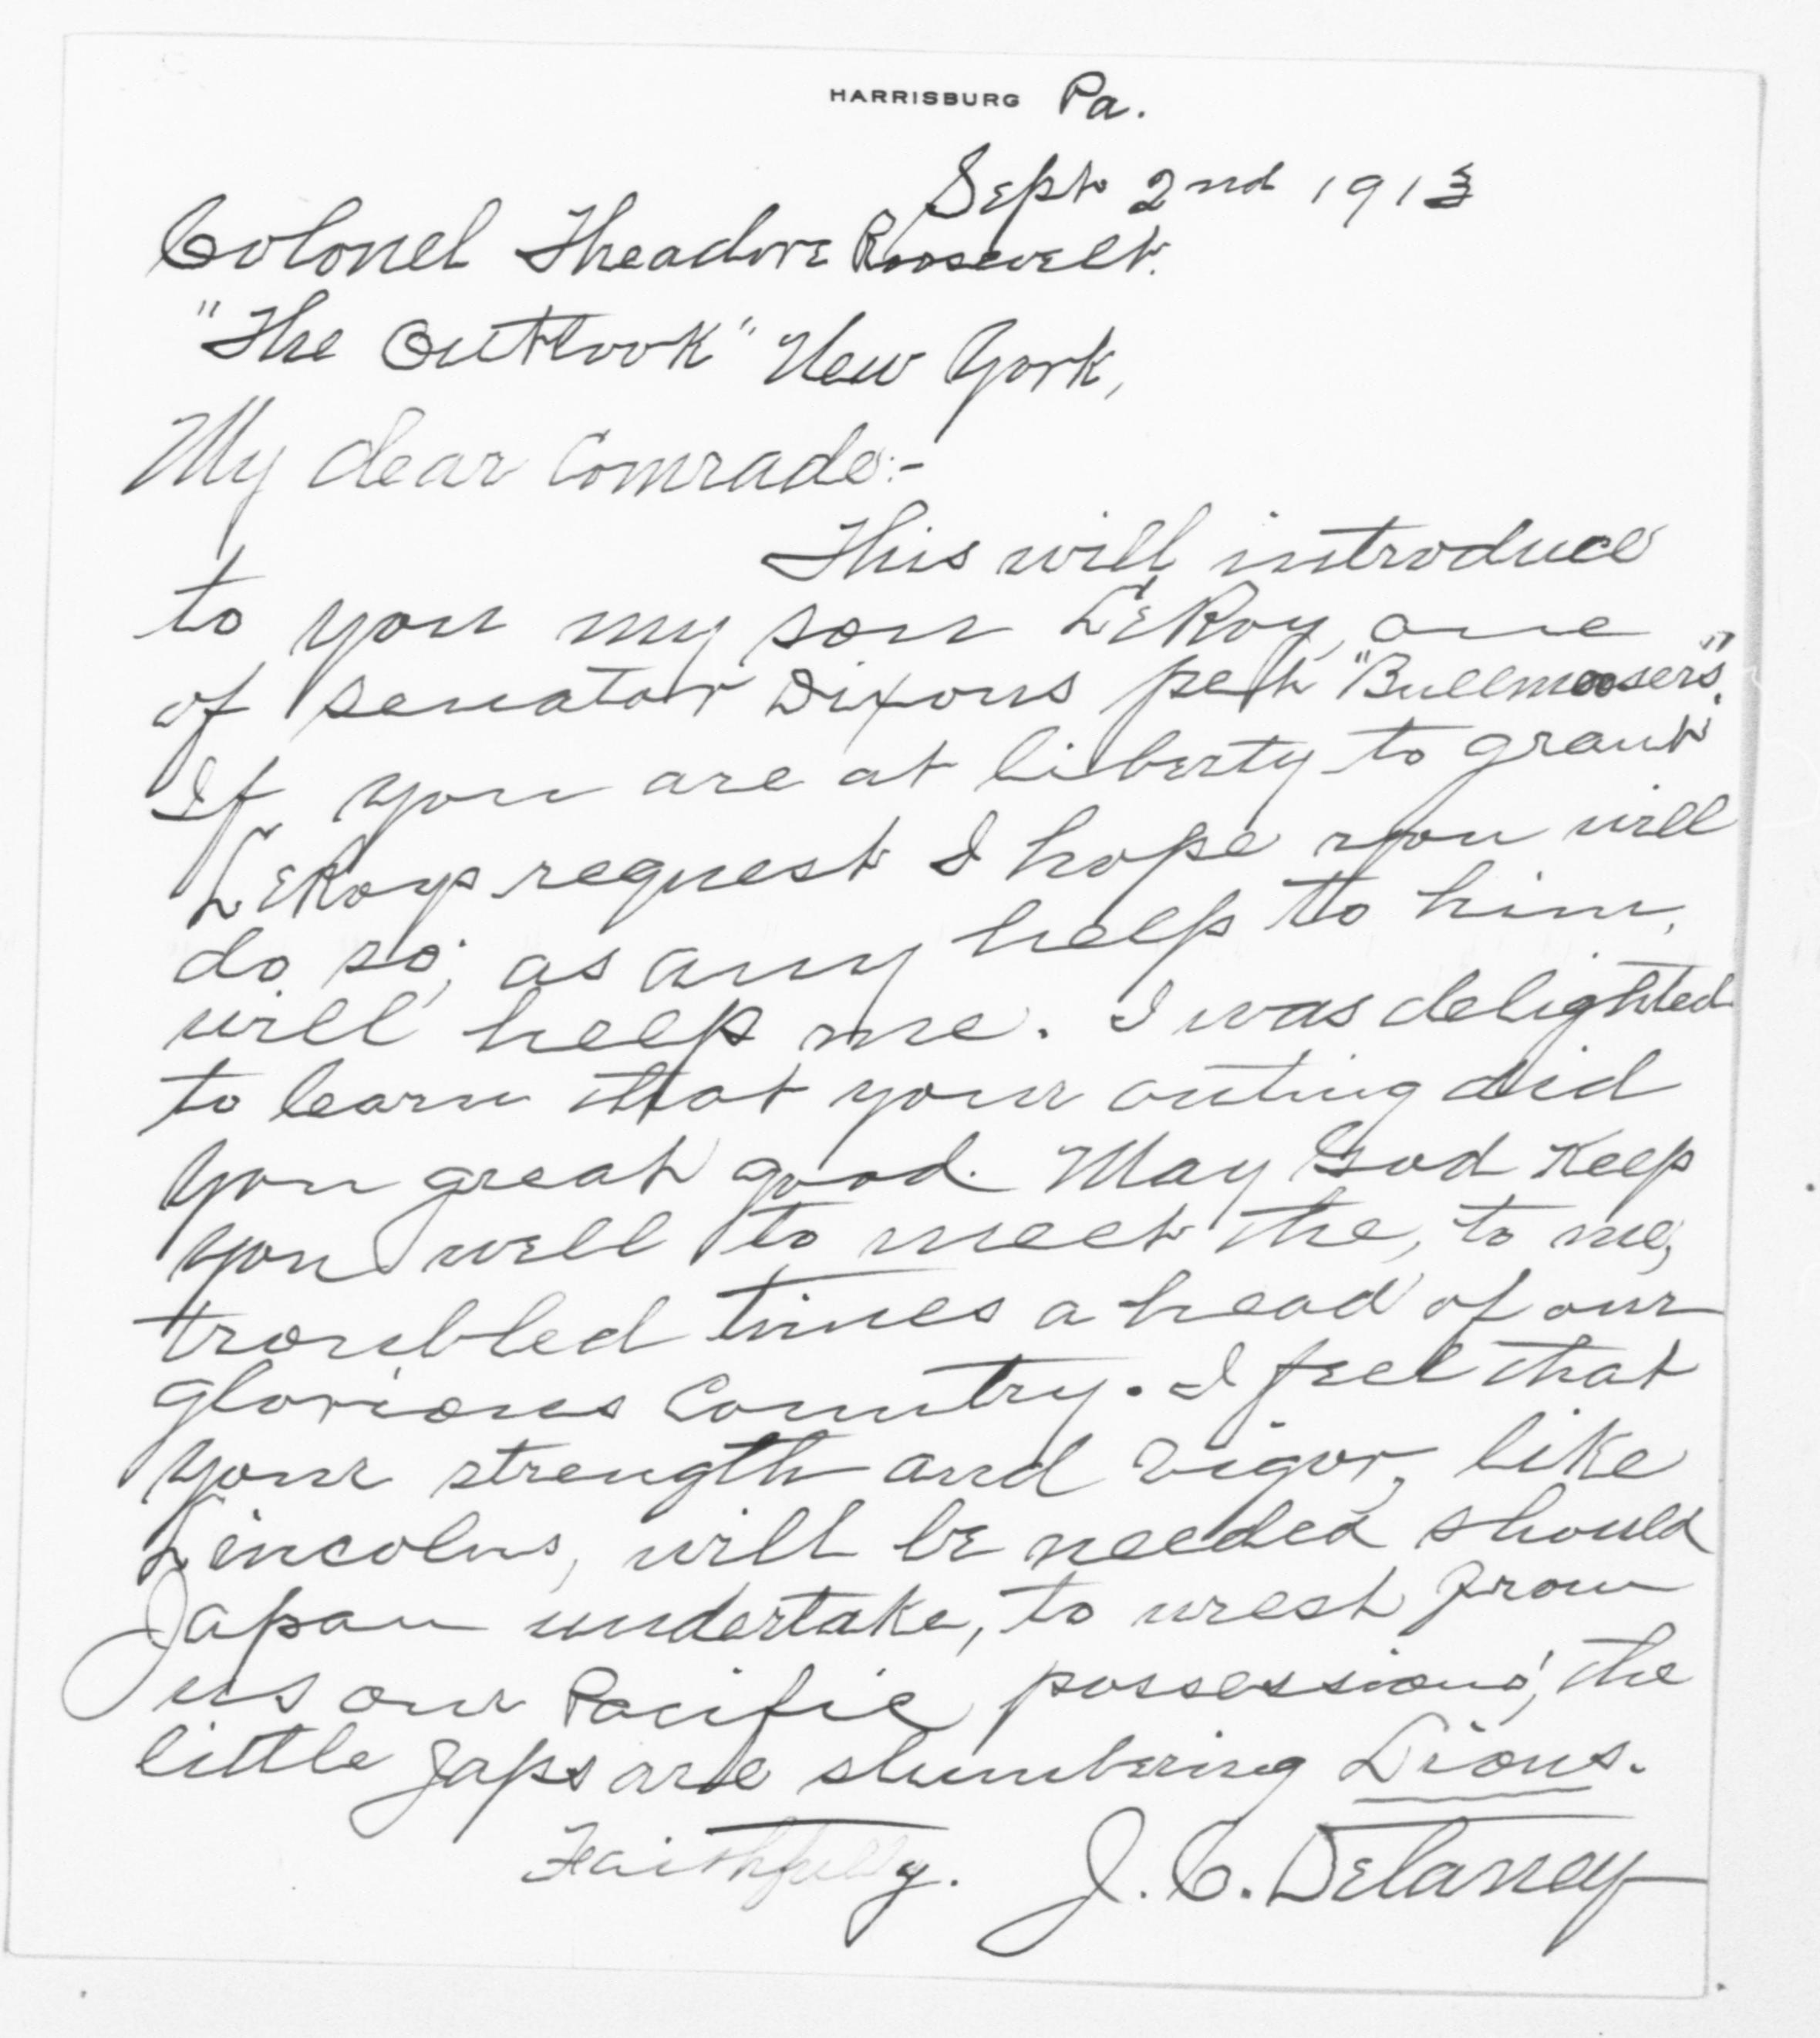 HARRISBURG Pa.
Sept 2nd 1913
Colonel Theadore Roosevelt.
"The Outlook" New York,
My dear Comrade:-
This will introduce
to you my son LeRoy, one
of senator Dixons pet "Bullmoosers".
If you are at liberty to grant
LeRoys request I hope you will
do so; as any help to him,
will help me. I was delighted
to learn that your outing did
you great good. May God Keep
you well to meet the, to me,
troubled times ahead of our
glorious Country. I feel that
your strength and vigor, like
Lincolns, will be needed should
Japan undertake, to wrest from
us our Pacific possessions, the
little Japs are slumbering Lions.
Faithfully. J. C. Delaney